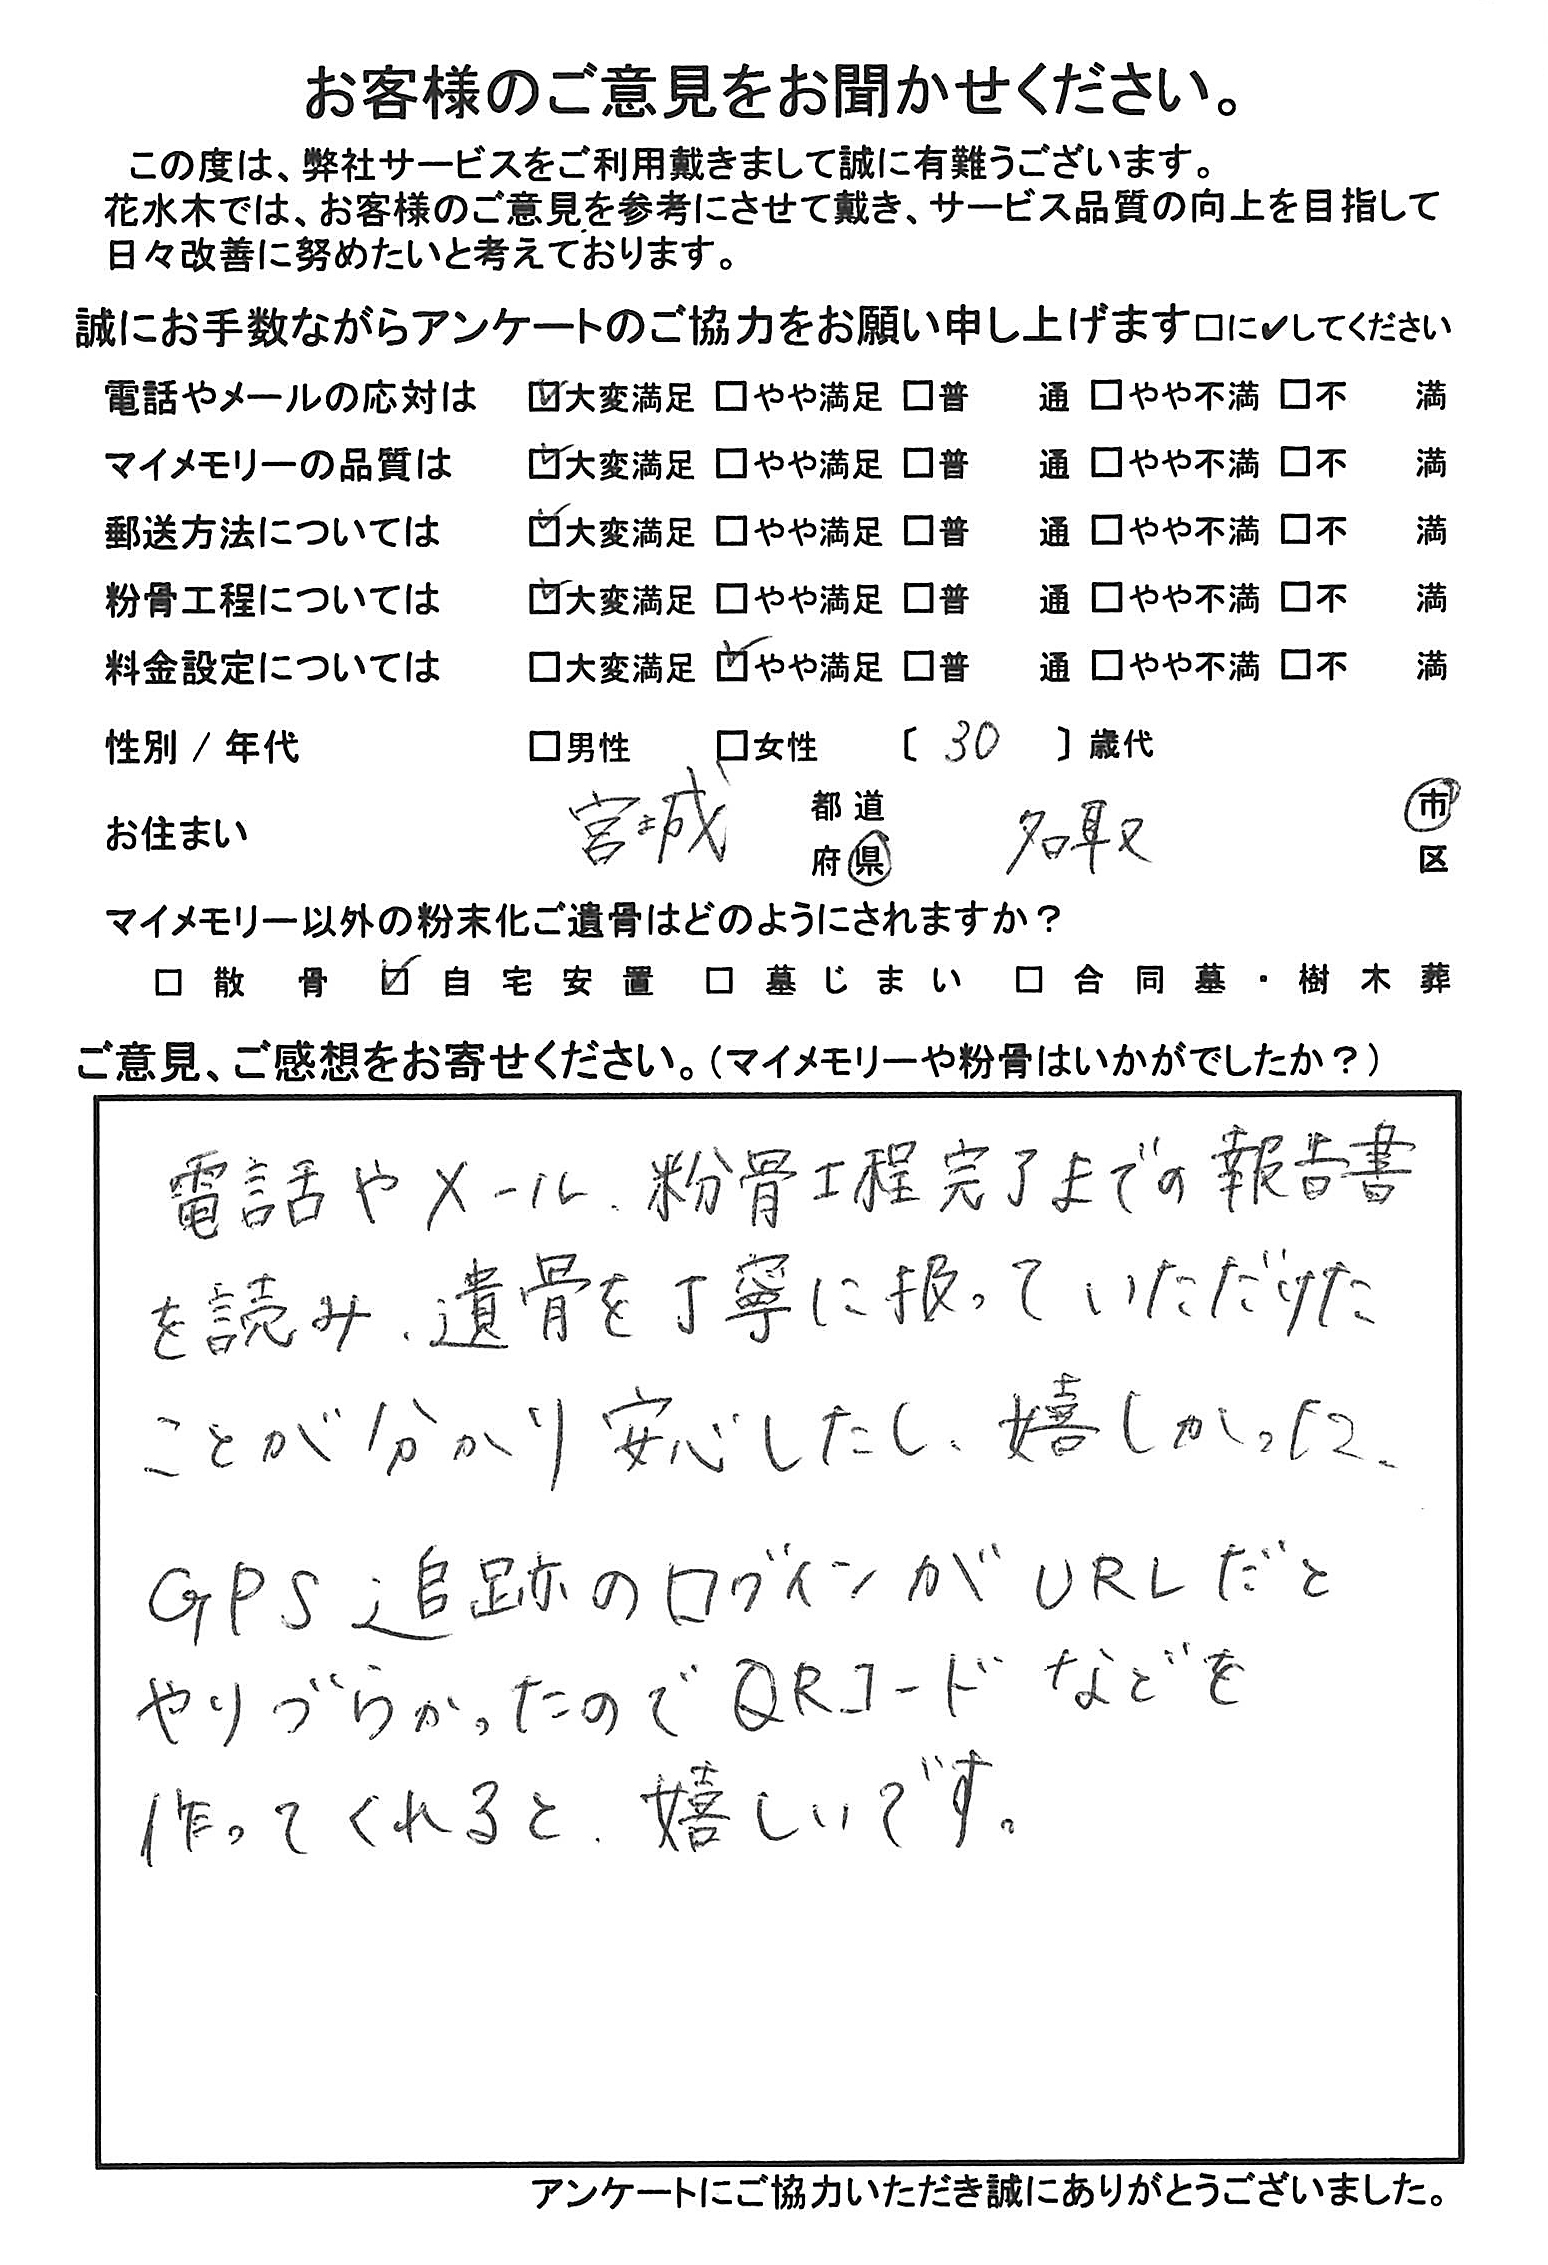 お客様のご意見をお聞かせください。
この度は、弊社サービスをご利用戴きまして誠に有難うございます。
花水木では、お客様のご意見を参考にさせて戴き、サービス品質の向上を目指して
日々改善に努めたいと考えております。
誠にお手数ながらアンケートのご協力をお願い申し上げます□に✔してください
電話やメールの応対は ☑大変満足 □やや満足 □普 通 □やや不満 □不 満
マイメモリーの品質は ☑大変満足 □やや満足 □普 通 □やや不満 □不 満
郵送方法については ☑大変満足 □やや満足 □普 通 □やや不満 □不 満
粉骨工程については ☑大変満足 □やや満足 □普 通 □やや不満 □不 満
料金設定については □大変満足 ☑やや満足 □普 通 □やや不満 □不 満
性別 / 年代 □男性 □女性 〔 30 〕歳代
お住まい 宮城 都道府県 名取 市区
マイメモリー以外の粉末化ご遺骨はどのようにされますか？
□ 散骨 ☑ 自宅安置 □ 墓じまい □ 合同墓・樹木葬
ご意見、ご感想をお寄せください。(マイメモリーや粉骨はいかがでしたか？)
電話やメール、粉骨工程完了までの報告書
を読み、遺骨を丁寧に扱っていただけた
ことが分かり安心したし、嬉しかった、
GPS追跡のログインがURLだと
やりづらかったのでQRコードなどを
作ってくれると、嬉しいです。
アンケートにご協力いただき誠にありがとうございました。